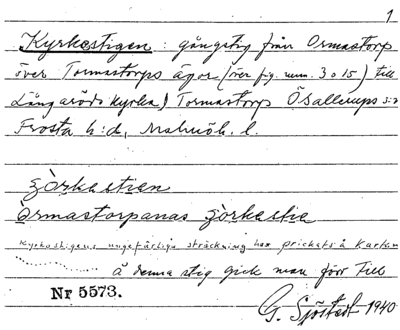 1
Kyrkestigen : gångstig från Ormastorp
över Tormastorps ägor (över fig. num. 3 o 15) till
Långaröds kyrka) Tormastorp Ö Sallerups s:n
Frosta h:d, Malmöh. l.
Ormastorpanas
Kyrkostigens ungefärliga sträckning har prickats å kartan
å denna stig gick man förr till
Nr 5573.
G. Sjöstedt 1940